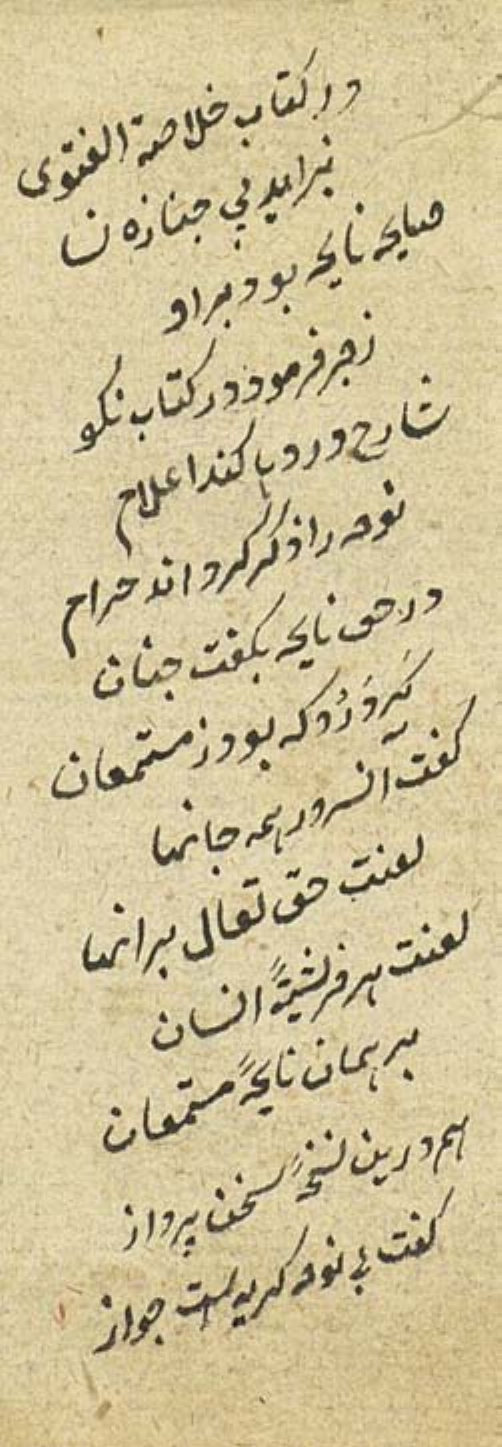 در کتاب خلاصة الفتوی
نبرایید پی جنازه نسا
صایحه نایحه بود بر او
زجر فرمود در کتاب نکو
شارح اوراد با کند اعلام
نوحه را ذکر کرد اند حرام
در حق نایحه بکفت چنان
بر دو که بود ز مستمعان
کفت آنسرور همه جانها
لعنت حق تعال بر انها
لعنت هر فرشتۀ انسان
بر همان نایحۀ مستمعان
هم درین نسخۀ سخن پرداز
کفت بی نوحه کریه است جواز